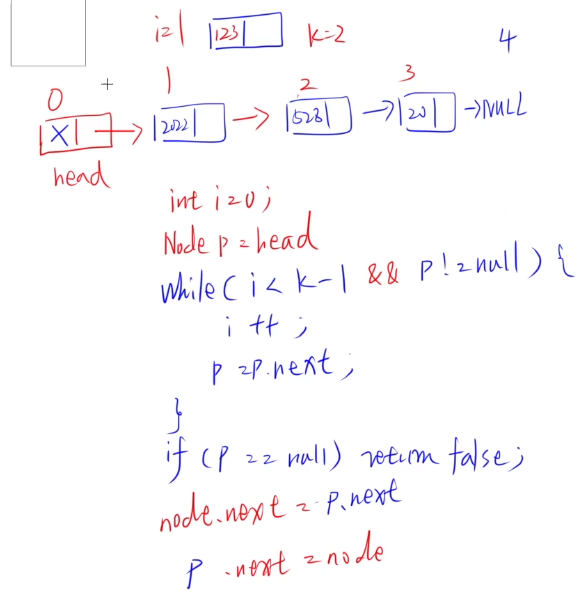 i=1 123 k=2 4
0 1 2 3
X → 2022 → 528 → 20 → NULL
head
int i=0;
Node p=head
while(i<k-1 && p!=null){
i++;
p=p.next;
}
if(p==null) return false;
node.next=p.next
p.next=node